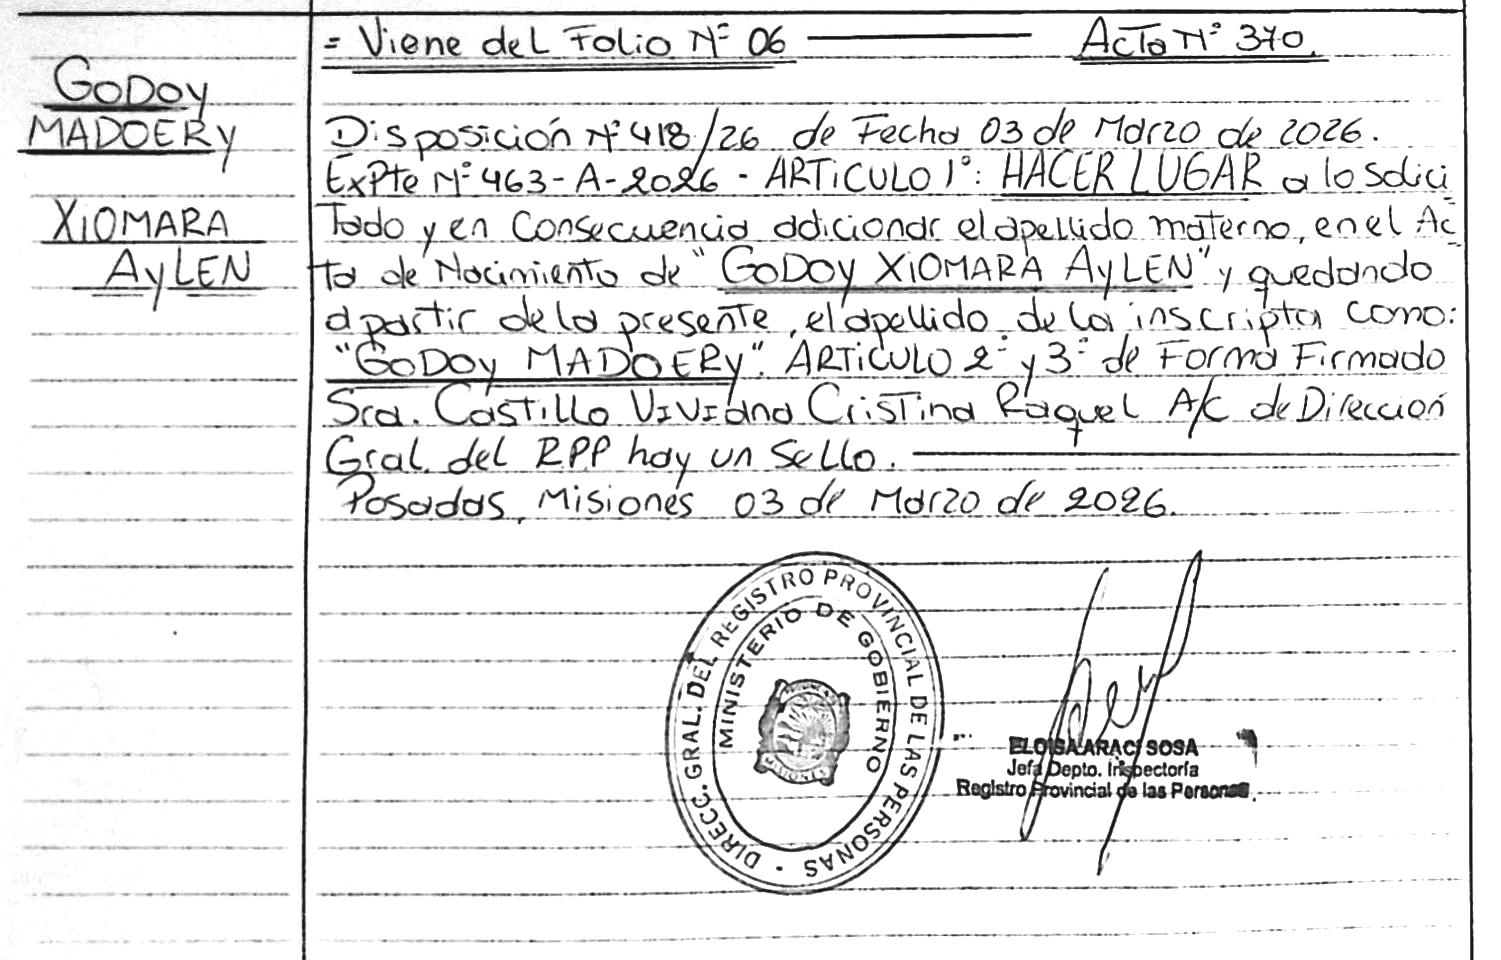 = Viene del Folio Nº 06 ——— Acta Nº 370.
GODOY
MADOERY
XIOMARA
AYLEN
Disposición Nº 418/26 de Fecha 03 de Marzo de 2026.
Expte Nº 463-A-2026 - ARTICULO 1º: HACER LUGAR a lo solici
tado y en Consecuencia adicionar el apellido materno, en el Ac
ta de Nacimiento de "GODOY XIOMARA AYLEN" y quedando
a partir de la presente, el apellido de la inscripta como:
"GODOY MADOERY". ARTICULO 2º y 3º de Forma Firmado
Sra. Castillo Viviana Cristina Raquel A/C de Dirección
Gral. del RPP hay un Sello.
Posadas, Misiones 03 de Marzo de 2026.
DIRECC. GRAL. DEL REGISTRO PROVINCIAL DE LAS PERSONAS
MINISTERIO DE GOBIERNO
MISIONES
ELOISA ARACI SOSA
Jefa Depto. Inspectoría
Registro Provincial de las Personas